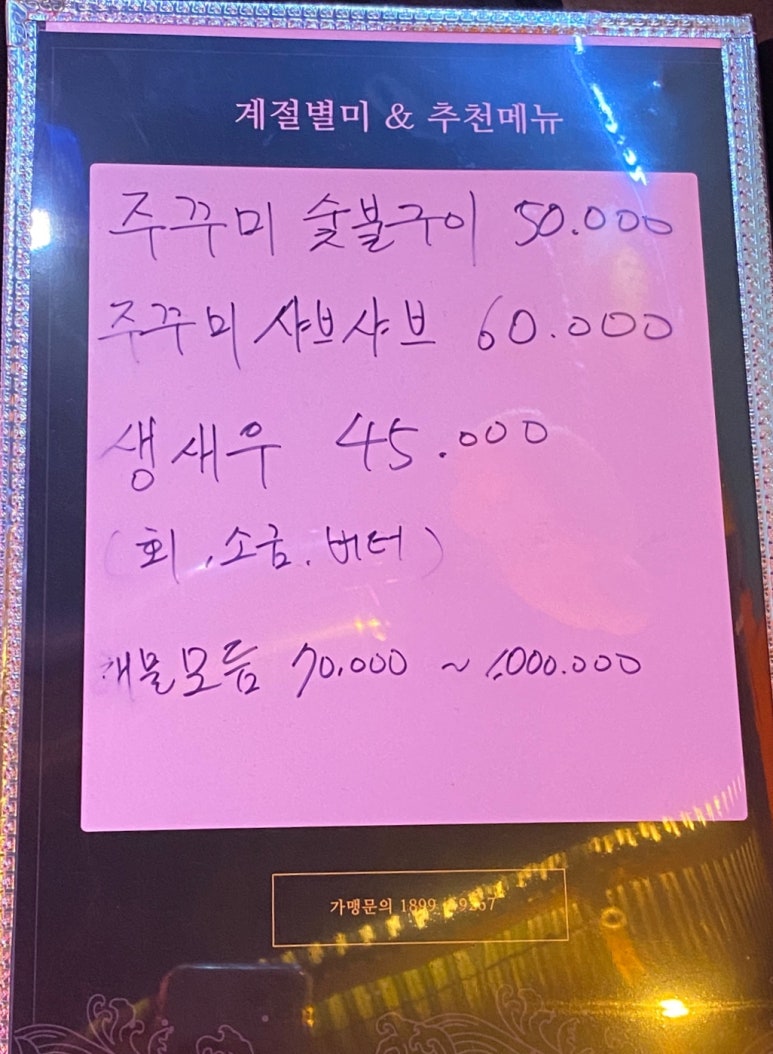 계절별미 & 추천메뉴
주꾸미 숯불구이 50.000
주꾸미 샤브샤브 60.000
생새우 45.000
(회, 소금. 버터)
해물모듬 70.000 ~ 1.000.000
가맹문의 1899